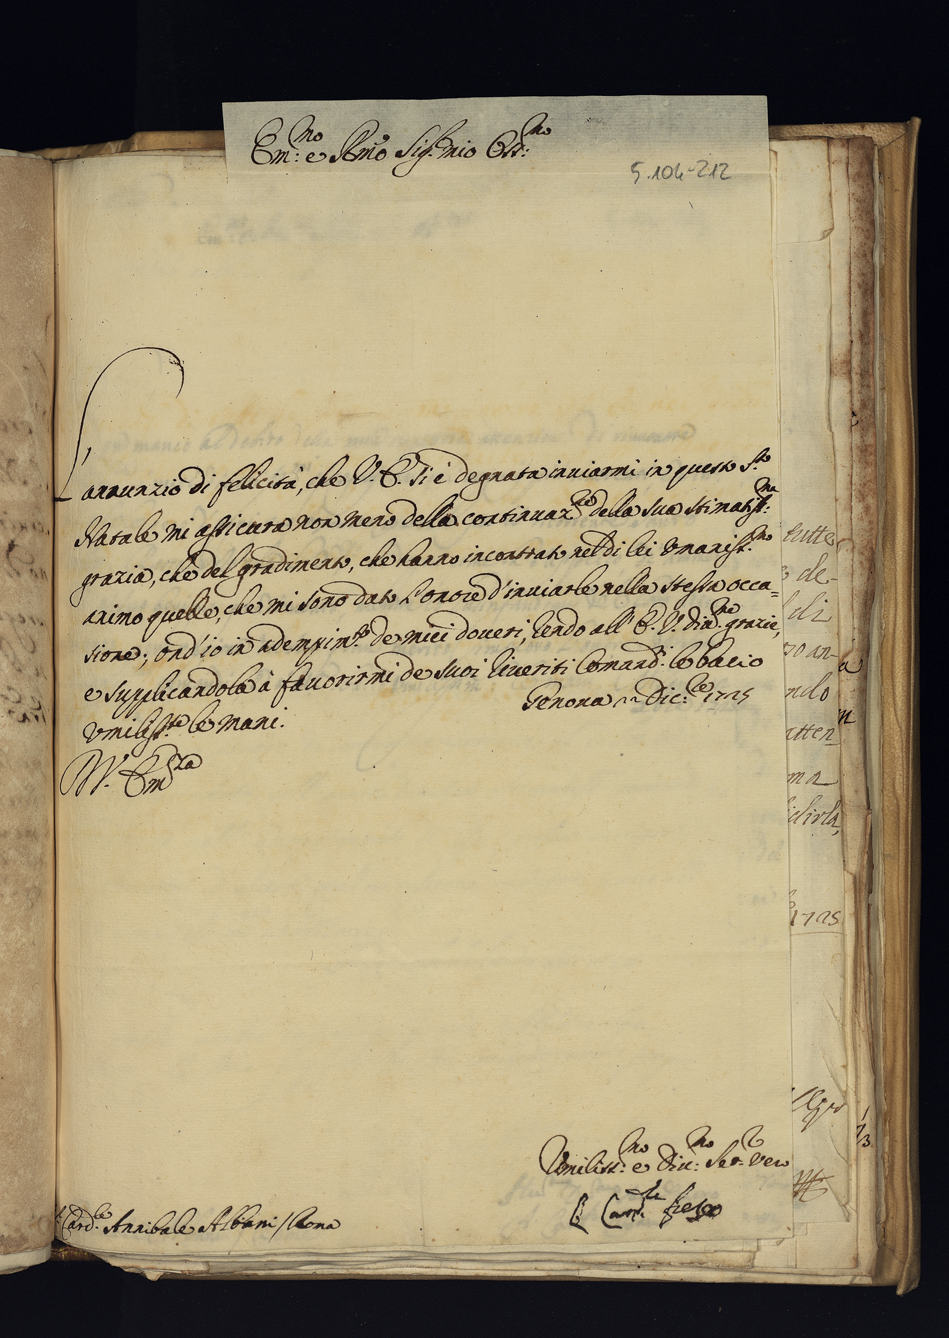 Em:mo e Rmo Sig.r mio Oss:mo
5.104-212
L'
annunzio di felicità, che V. E. si è degnata inviarmi in questo S.to
Natale mi assicura non meno della continuaz.ne della sua stimatiss:ma
grazia, che del gradimento, che hanno incontrato nel di lei umaniss.mo
animo quelle, che mi sono dato l'onore d'inviarle nella stessa occa=
sione; ond'io in adempim.to de miei doveri, rendo all'E. V. div.me grazie,
e supplicandola à favorirmi de suoi riveriti Comandi le bacio
umiliss.te le mani.
Genova 22 Dic.bre 1725
D V. Em.za
Umiliss:mo e Div:mo Ser: vero
Card.le Annibale Albani / Roma
Il Card.le Fiesco
tutte
de-
di
zo an-
ndo
atten
ma
1725